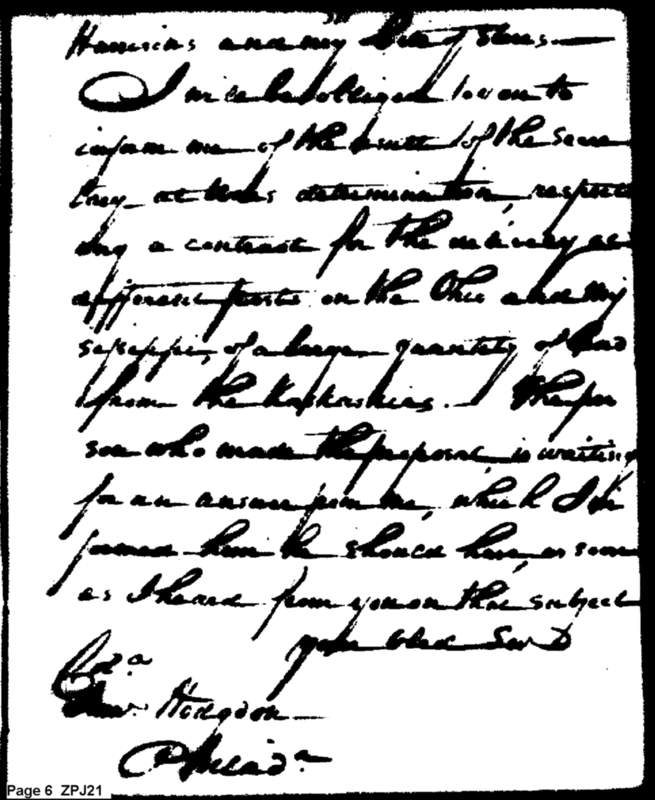 and my
I will be obliged to you to
inform me of the result of the Secre
tary at Wars determination, respect
ing a contract for the delivery at
different posts on the Ohio and Mis
sisippi, of a large quantity of lead
from the Kaskaskias. The per
son who made the proposal is waiting
for an answer from me, which I in
formed him he should have, as soon
as I heard from you on that subject
your Obed Servt
Hodgdon
Philada
Page 6 ZPJ21